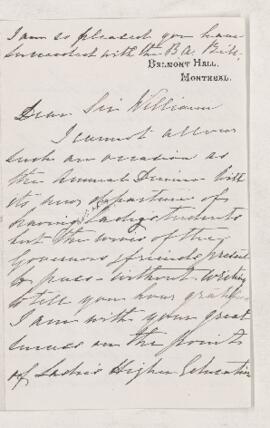 I am so pleased you have
succeeded with the B.A. Bill.
BELMONT HALL,
MONTREAL.
Dear Sir William
I cannot allow
such an occasion as
the Annual Dinner with
its new departure of
having Lady students
but the wives of the
Governors & friends present
to pass without writing
to tell you how
I am with your great
success on the point
of Ladies Higher Education